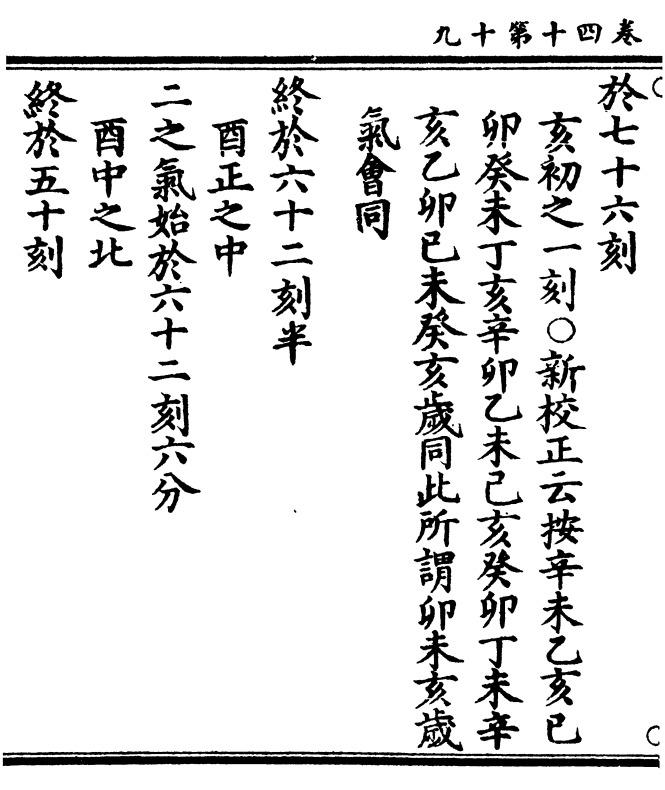 卷四十第十九
於七十六刻
亥初之一刻○新校正云按辛未乙亥已
卯癸未丁亥辛卯乙未己亥癸卯丁未辛
亥乙卯已未癸亥歲同此所謂卯未亥歲
氣會同
終於六十二刻半
酉正之中
二之氣始於六十二刻六分
酉中之北
終於五十刻